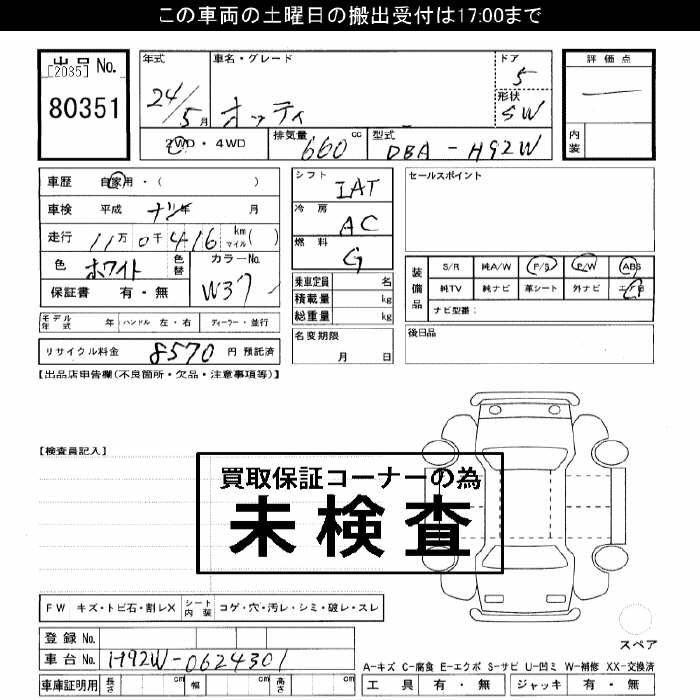 この車両の土曜日の搬出受付は17:00まで
出品 No.
[2035]
80351
年式
24/5月
車名・グレード
オッティ
ドア
5
形状
SW
評価点
内装
2WD・4WD
排気量 660 cc
型式 DBA-H92W
車歴 自家用・( )
車検 平成 ナシ年 月
走行 11万0千416 km マイル( )
色 ホワイト 色替
カラーNo. W37
保証書 有・無
シフト
IAT
冷房
AC
燃料
G
乗車定員 名
積載量 kg
総重量 kg
名変期限
月 日
セールスポイント
装備品
S/R 純A/W P/S P/W ABS
純TV 純ナビ 革シート 外ナビ
ナビ型番:
後日品
モデル年式 年 ハンドル 左・右 ディーラー・並行
リサイクル料金 8570 円 預託済
【出品店申告欄(不良個所・欠品・注意事項等)】
【検査員記入】
買取保証コーナーの為
未検査
FW キズ・トビ石・割レX シート内装 コゲ・穴・汚レ・シミ・破レ・スレ
スペア
登録 No.
車台 No. H92W-0624301
A-キズ C-腐食 E-エクボ S-サビ U-凹ミ W-補修 XX-交換済
車庫証明用 長さ cm 幅 cm 高さ cm
工具 有・無 ジャッキ 有・無